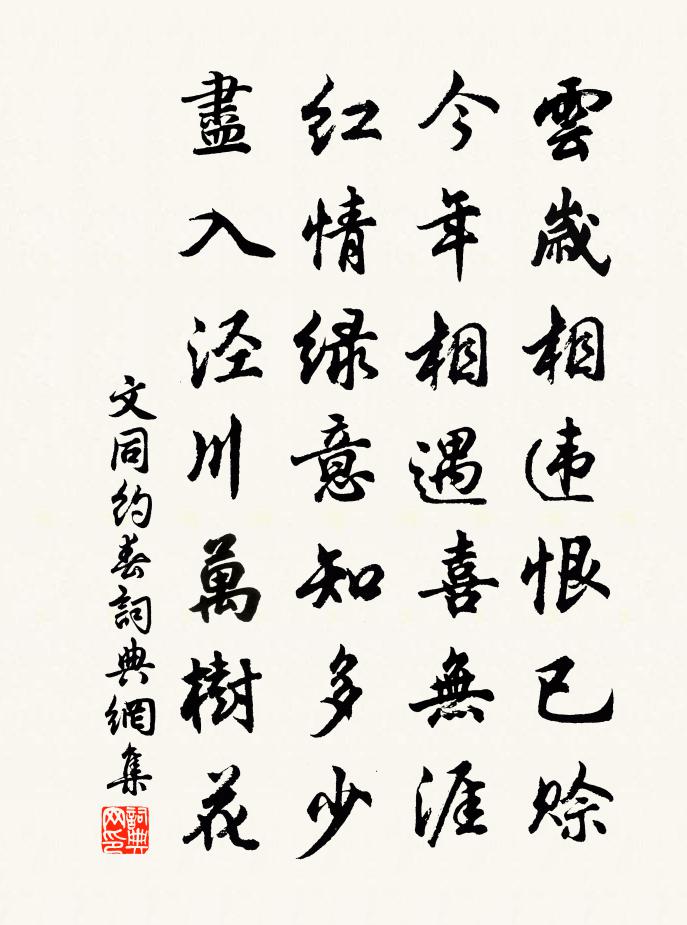 雲歲相违恨已賒
今年相遇喜無涯
紅情緑意知多少
盡入涇川萬樹花
文同約春詞典網集
詞典网印